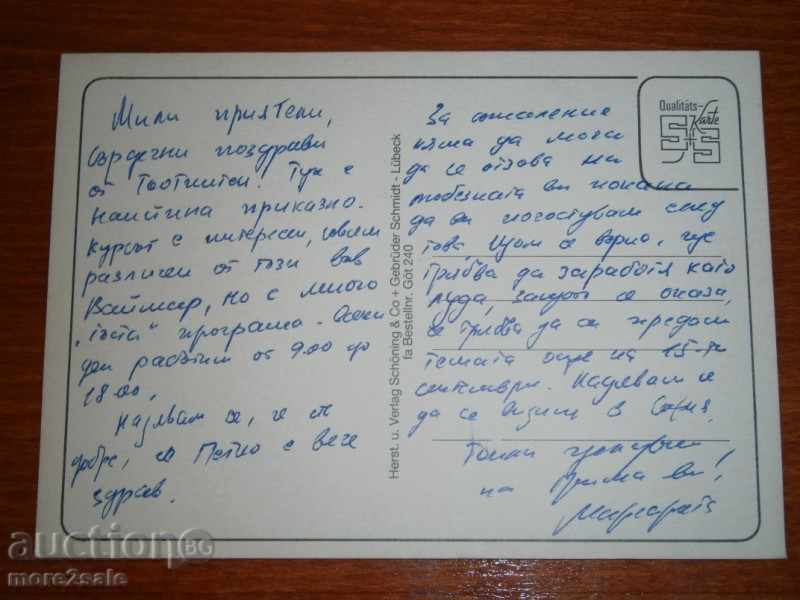 Мили приятели,
сърдечни поздрави
от Тук е
наистина приказно.
Курсът е интересен, съвсем
различен от този във
Ваймар, но с много
програма. Всеки
ден работим от 9.00 до
18.00.
Надявам се, че сте
добре, и Петко е вече
здрав.
За съжаление
няма да мога
да се отзова на
любезната ви покана
да ви погостувам след
това. Щом се върна, ще
трябва да заработя като
луда, защото се оказа,
че трябва да си предам
темата още на 15-ти
септември. Надявам се
да се видим в София.
Топли целувки
на двама ви!
Маргарита
Qualitäts-
Karte
S+G
Herst. u. Verlag Schöning & Co + Gebrüder Schmidt - Lübeck
fa Bestellnr. Göt 240
auctionBG
more2sale